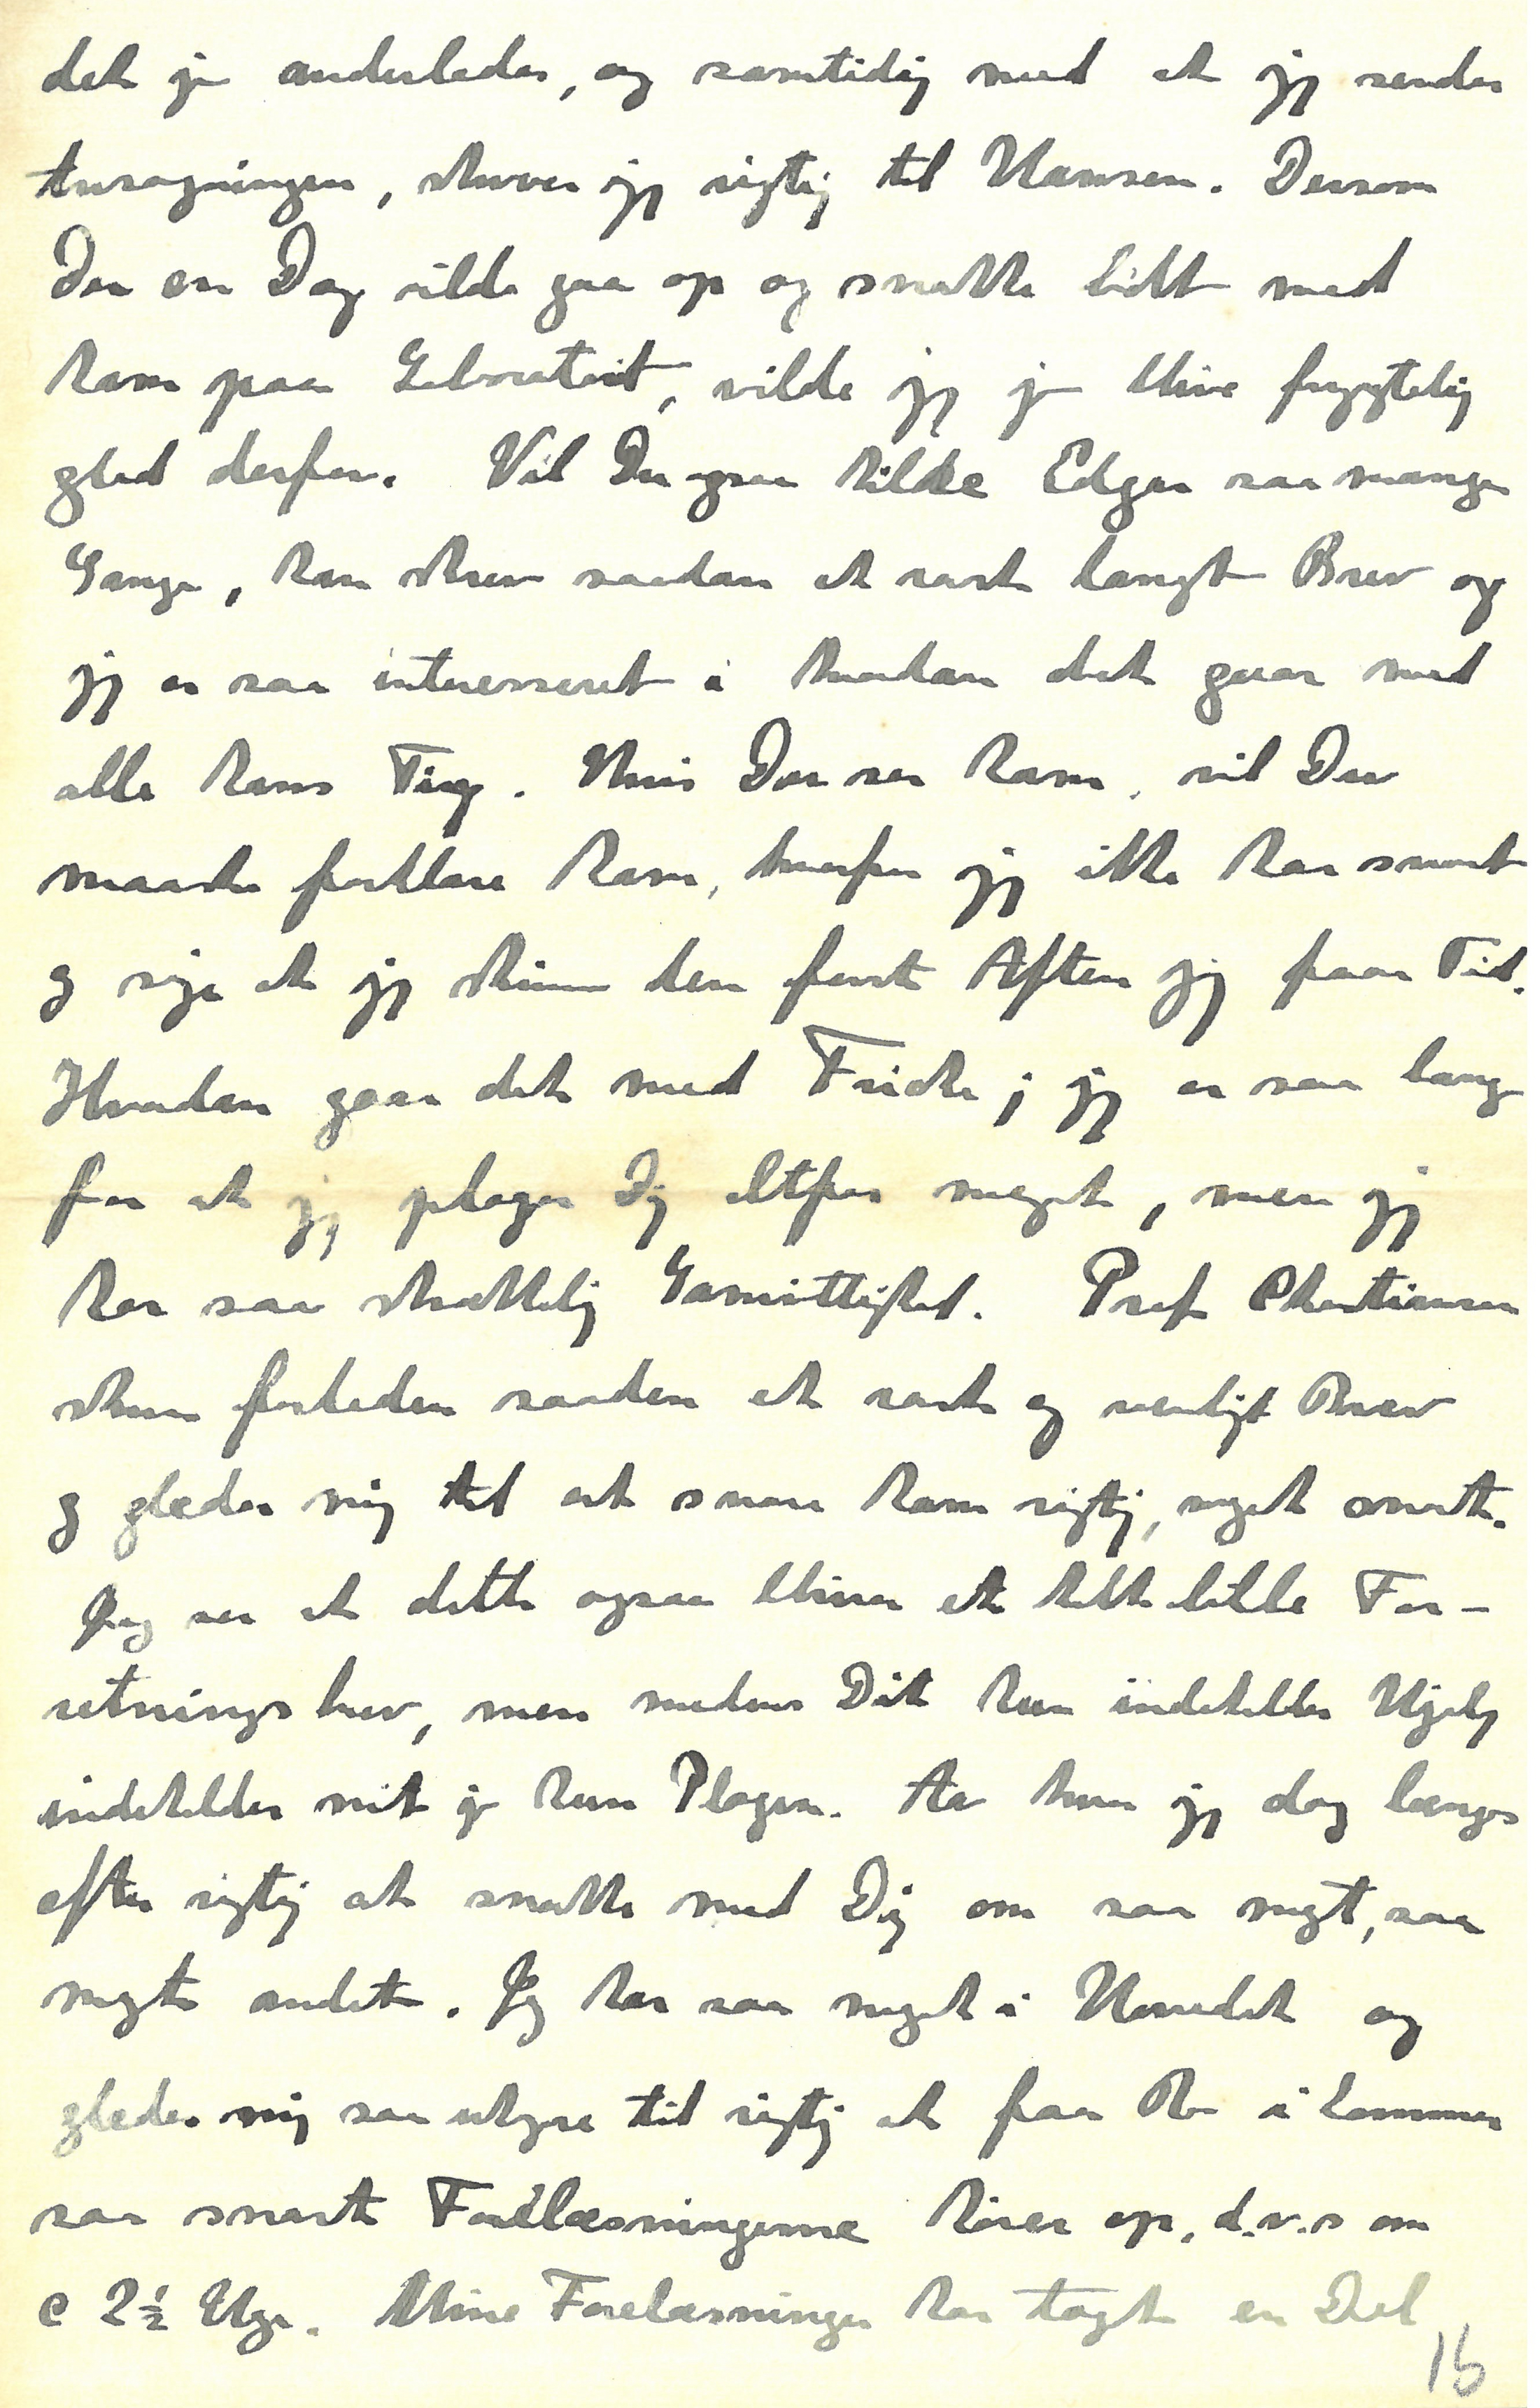 det jo anderledes, og samtidig med at jeg sender
Ansøgningen, skriver jeg rigtig til Hansen. Dersom
Du en Dag vilde gaa op og snakke lidt med
ham paa Laboratoriet, vilde jeg jo blive frygtelig
glad derfor. Vil Du ogsaa hilse Edgar saa mange
Gange, han skrev saadan et rart langt Brev og
jeg er saa interesseret i hvordan det gaar med
alle hans Ting. Hvis Du ser ham, vil Du
maaske forklare ham, hvorfor jeg ikke har svaret
og sige at jeg skriver den første Aften jeg faar Tid.
Hvordan gaar det med Fricke; jeg er saa bange
for at jeg plager Dig altfor meget, men jeg
har saa skrækkelig Samvittighed. Prof Christiansen
skrev forleden saadan et rart og venligt Brev
og glæder mig til at svare ham rigtig, meget snart.
Jeg ser at dette ogsaa bliver et helt lille For-
retningsbrev, men medens Dit kun indeholder Hjælp
indeholder mit jo kun Plager. Aa hvor jeg dog længes
efter rigtig at snakke med Dig om saa meget, saa
meget andet. Jeg har saa meget i Hovedet og
glæder mig saa uhyre til rigtig at faa Ro i Sommer
saa snart Forelæsningerne hører op, d.v.s om
c 2½ Uge. Mine Forelæsninger har taget en Del
16